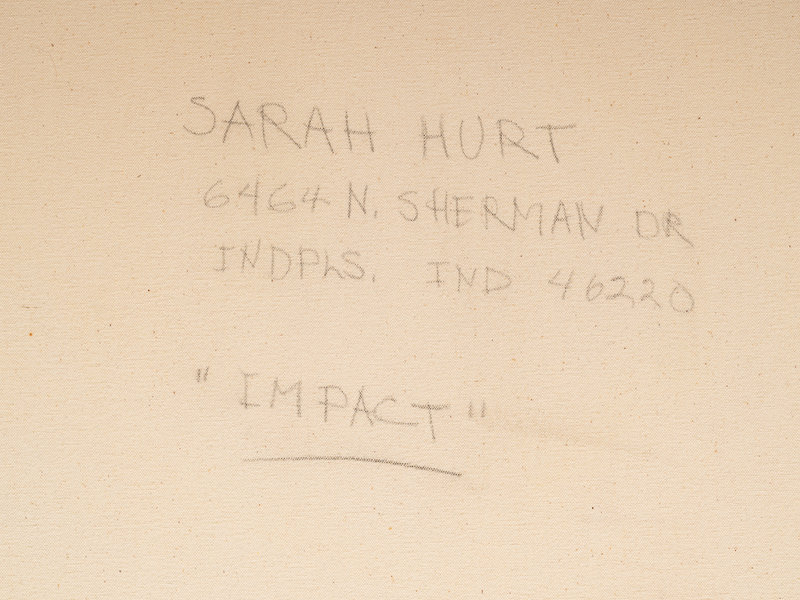 SARAH HURT
6464 N. SHERMAN DR
INDPLS. IND 46220
"IMPACT"